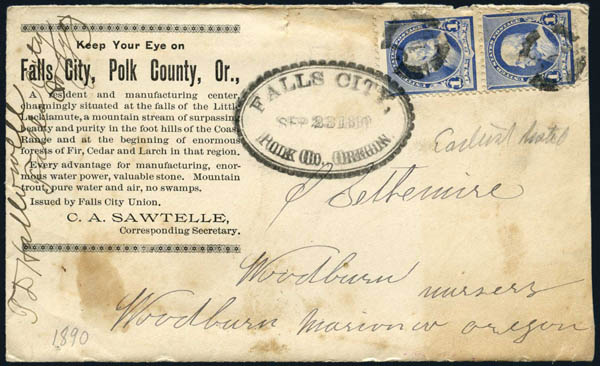 Keep Your Eye on
Falls City, Polk County, Or.,
A resident and manufacturing center,
charmingly situated at the falls of the Little
Luckiamute, a mountain stream of surpassing
beauty and purity in the foot hills of the Coast
Range and at the beginning of enormous
forests of Fir, Cedar and Larch in that region.
Every advantage for manufacturing, enor-
mous water power, valuable stone. Mountain
trout, pure water and air, no swamps.
Issued by Falls City Union.
C. A. SAWTELLE,
Corresponding Secretary.
FALLS CITY,
SEP 23 1890
POLK CO. OREGON.
1
1
Settlemire
Woodburn nursery
Woodburn Marion co oregon
1890